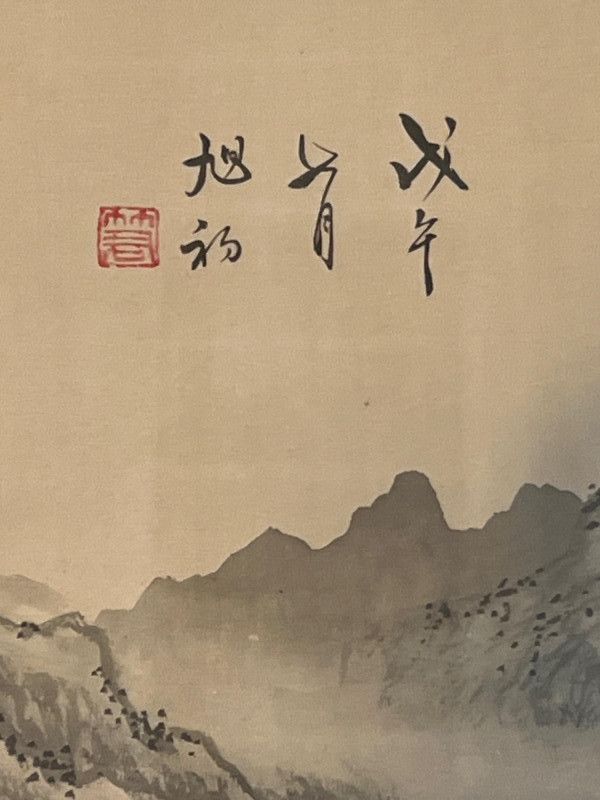 戊午
月
旭初